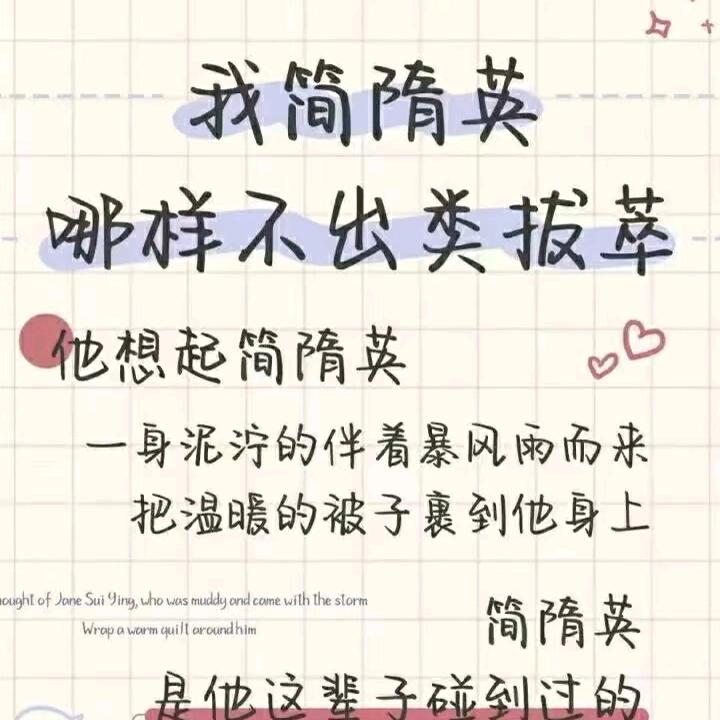 我简隋英
哪样不出类拔萃
他想起简隋英
一身泥泞的伴着暴风雨而来
把温暖的被子裹到他身上
ought of Jane Sui Ying, who was muddy and came with the storm
Wrap a warm quilt around him
简隋英
是他这辈子碰到过的